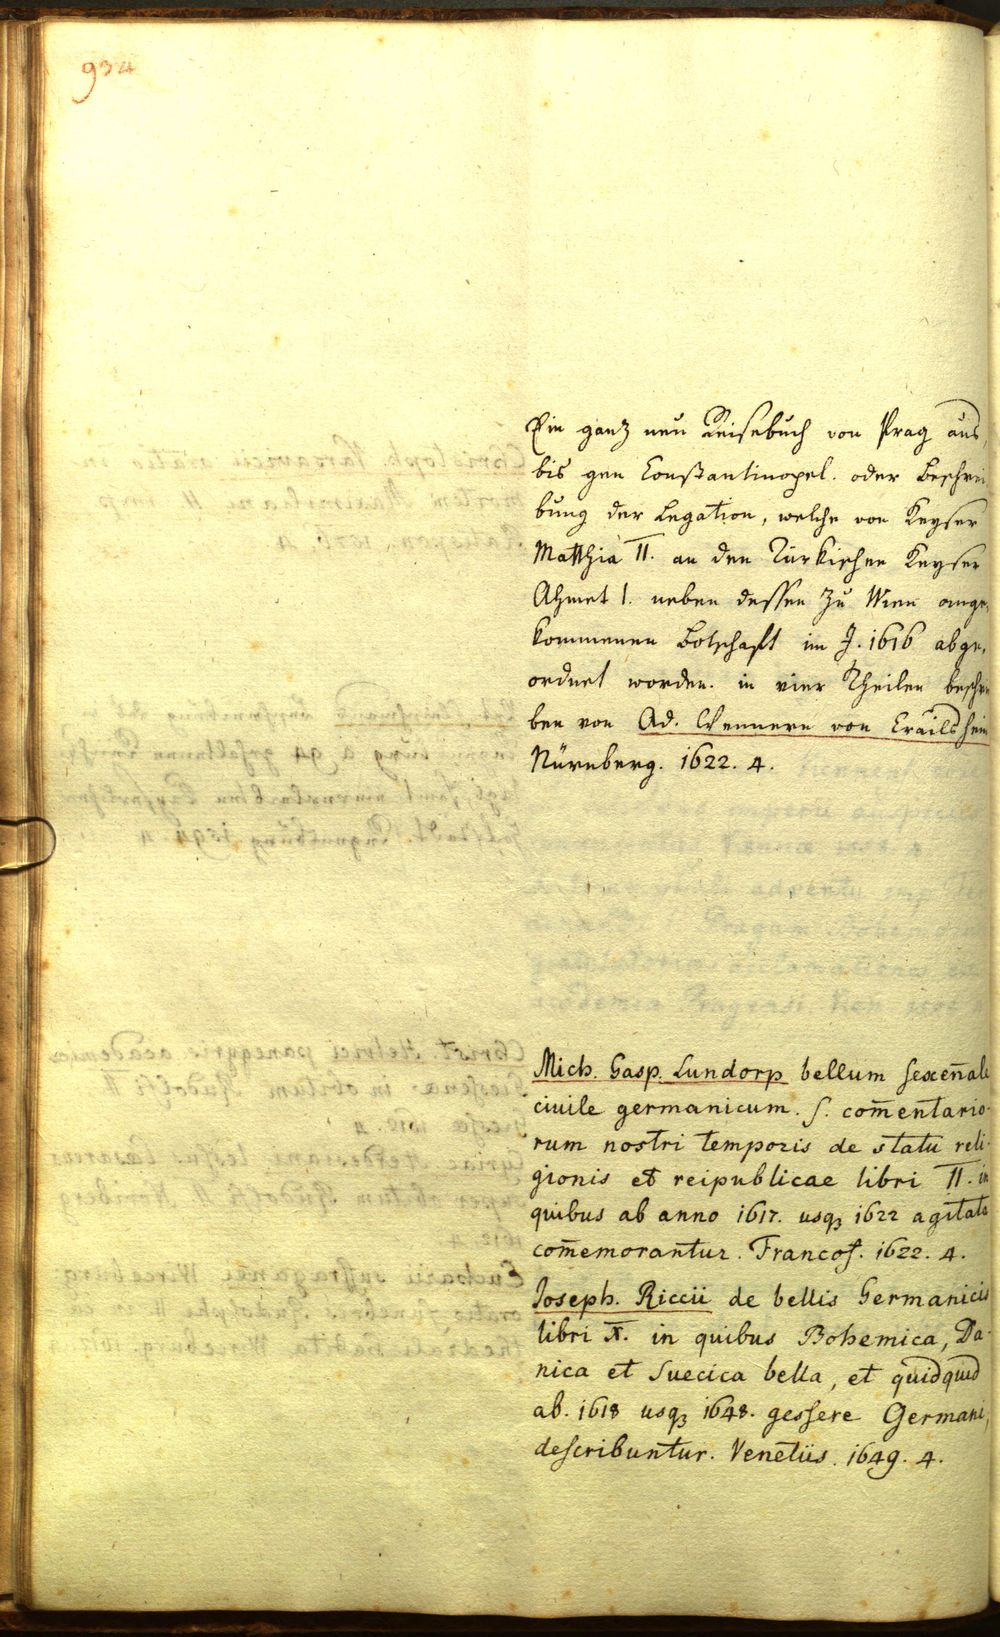 934
Ein ganz neu Reisebuch von Prag aus,
bis gen Constantinopel. oder Beschrei
bung der Legation, welche von Keyser
Matthia II. an den Türkischen Keyser
Ahmet I. neben dessen zu Wien ange,
kommenen Botschaft im J. 1616 abge,
ordnet worden. in vier Theilen beschrie
ben von Ad. Wennern von Crailsheim
Nürnberg. 1622. 4.
Mich. Gasp. Lundorp bellum sexen̄ale
ciuile germanicum. s. com̄entario-
rum nostri temporis de statu reli-
gionis et reipublicae libri II. in
quibus ab anno 1617. usqꝫ 1622 agitata
com̄emorantur. Francof. 1622. 4.
Joseph. Riccii de bellis Germanicis
libri X. in quibus Bohemica, Da-
nica et Suecica bella, et quidquid
ab. 1618 usqꝫ 1648. gessere Germani,
describuntur. Venetiis. 1649. 4.